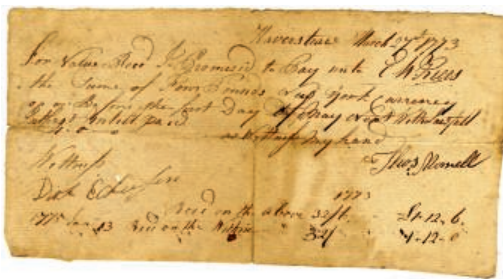 Haverstraw March 27th 1773
For Value Recd I Promised to Pay unto
the Sume of Four Pounds New York Currency
on or Before the first Day of May Next With Lawfull
Intrest untill paid
as Witness my hand
Witness
Thos Morrell
1773
Recd on the above 32/6 £1-12-6
1775 Jan 13 Recd on the Within 32/ 1-12-0